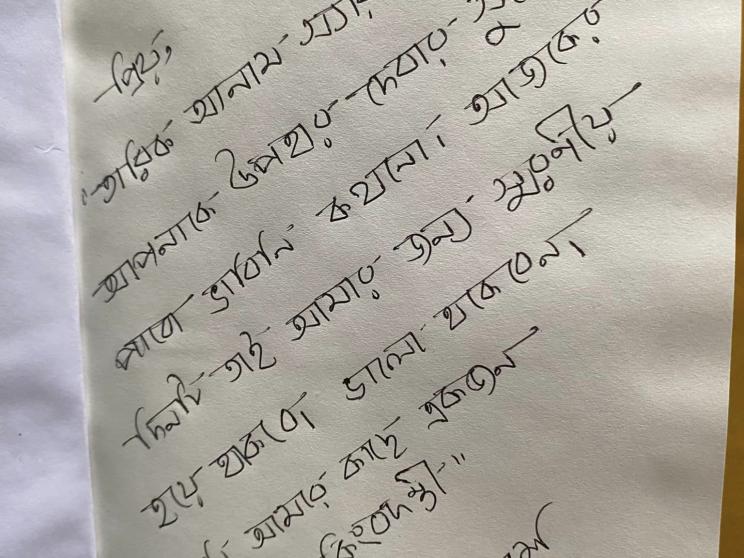 প্রিয়,
"তারিক আনাম স্যার
আপনাকে উপহার দেবার
পাবো ভাবিনি কখনো। আজকের
দিনটি তাই আমার জন্য স্মরণীয়
হয়ে থাকবে। ভালো থাকবেন।
আমার কাছে একজন
কিংবদন্তী"